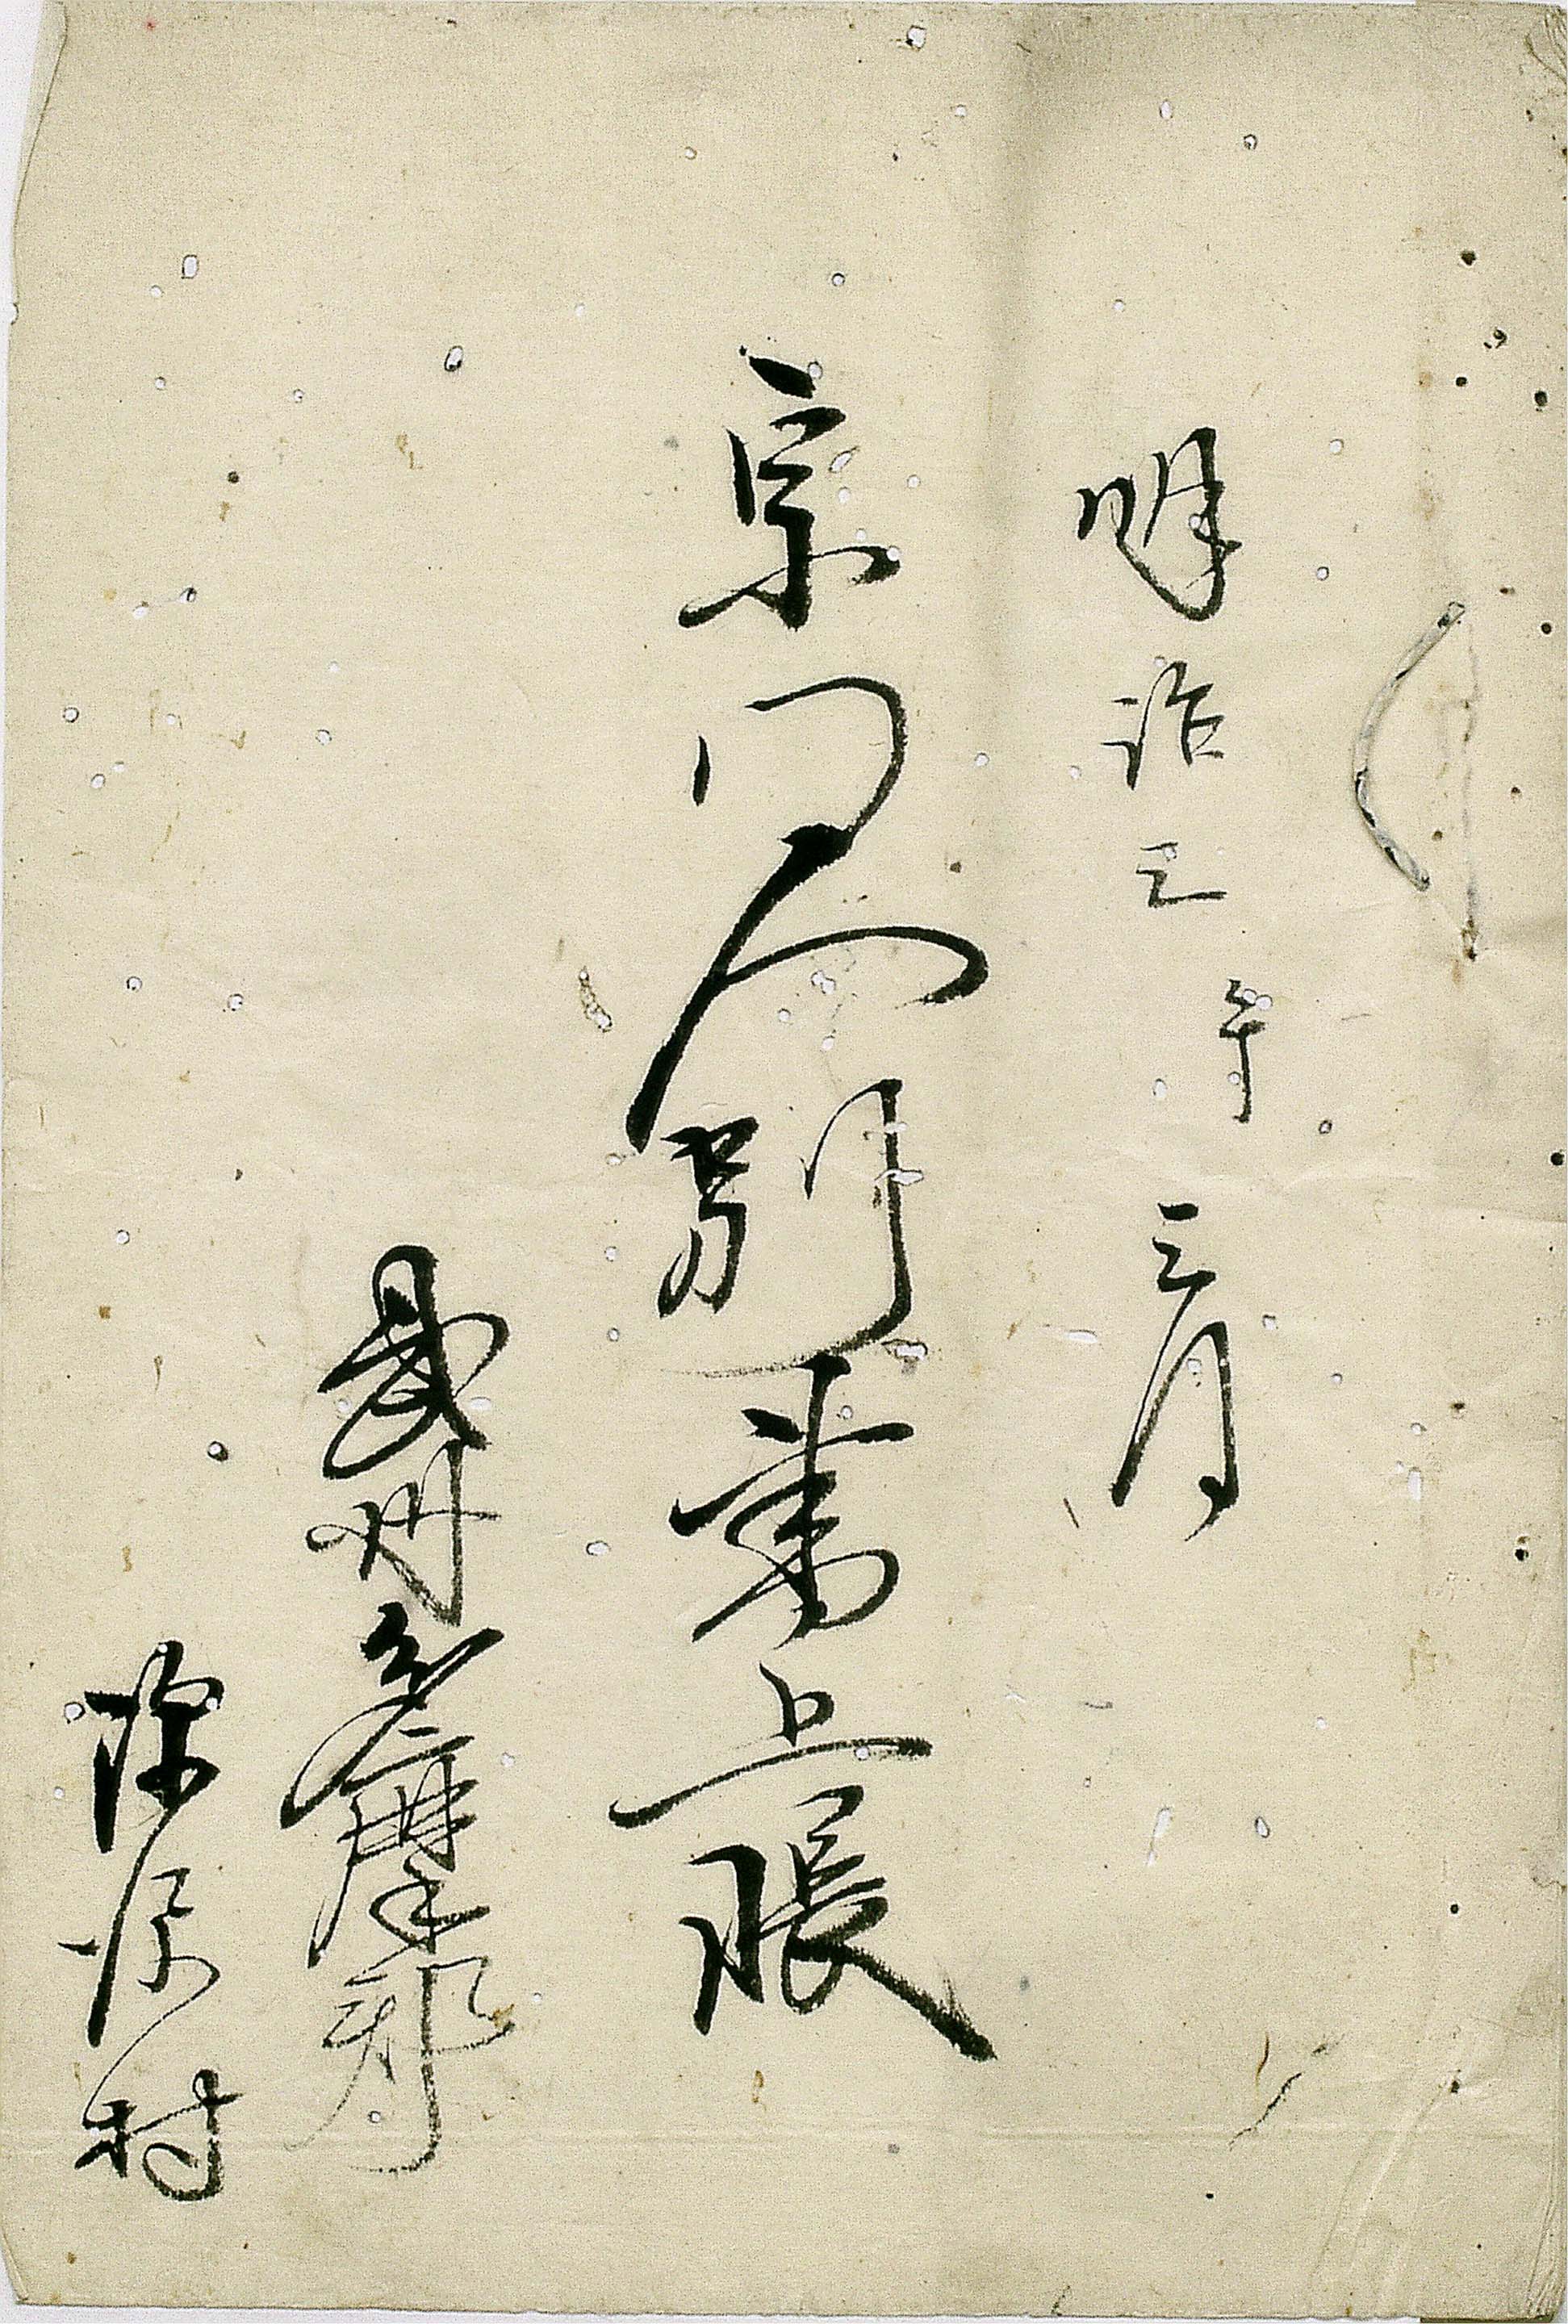 明治三午三月
宗門人別書上帳
武州多摩郡
村